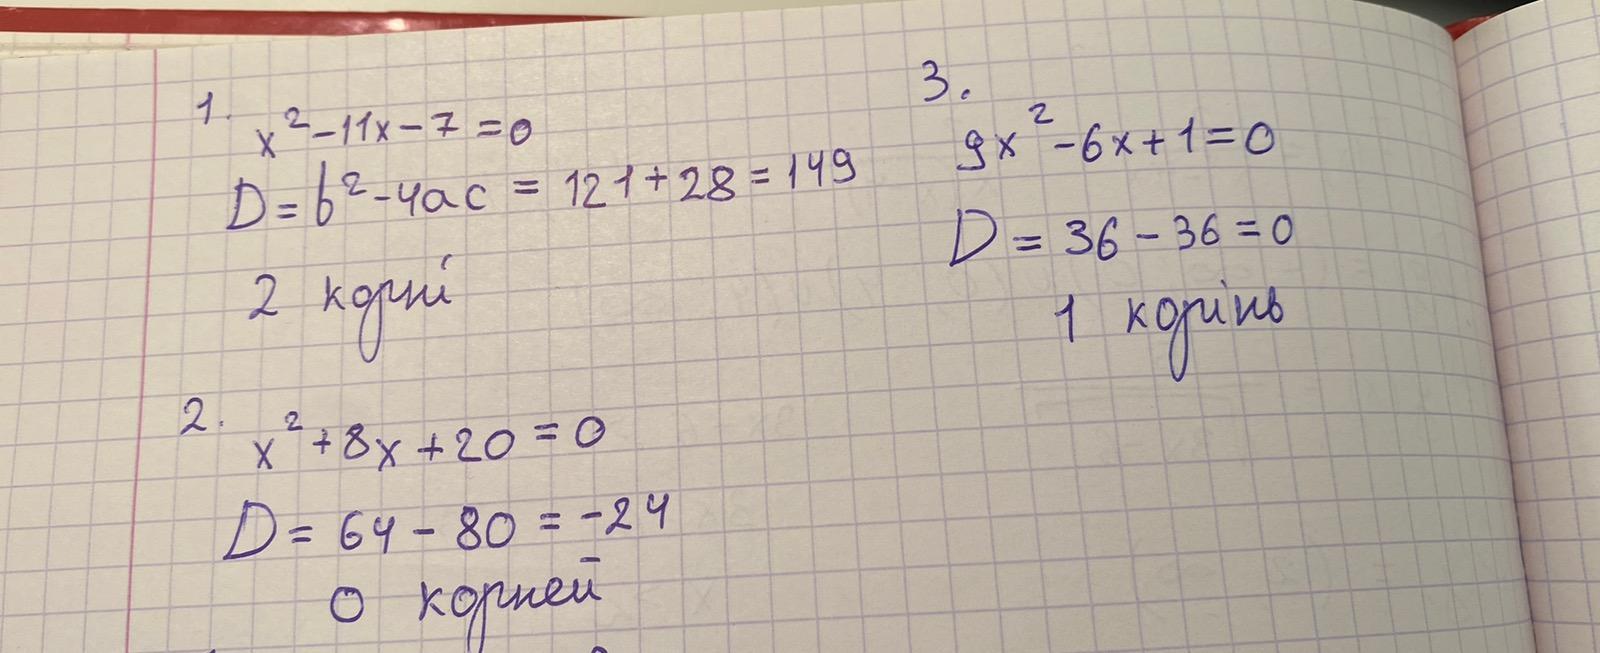 1.
x² - 11x - 7 = 0
D = b² - 4ac = 121 + 28 = 149
2 корні
2.
x² + 8x + 20 = 0
D = 64 - 80 = -24
0 корней
3.
9x² - 6x + 1 = 0
D = 36 - 36 = 0
1 корінь